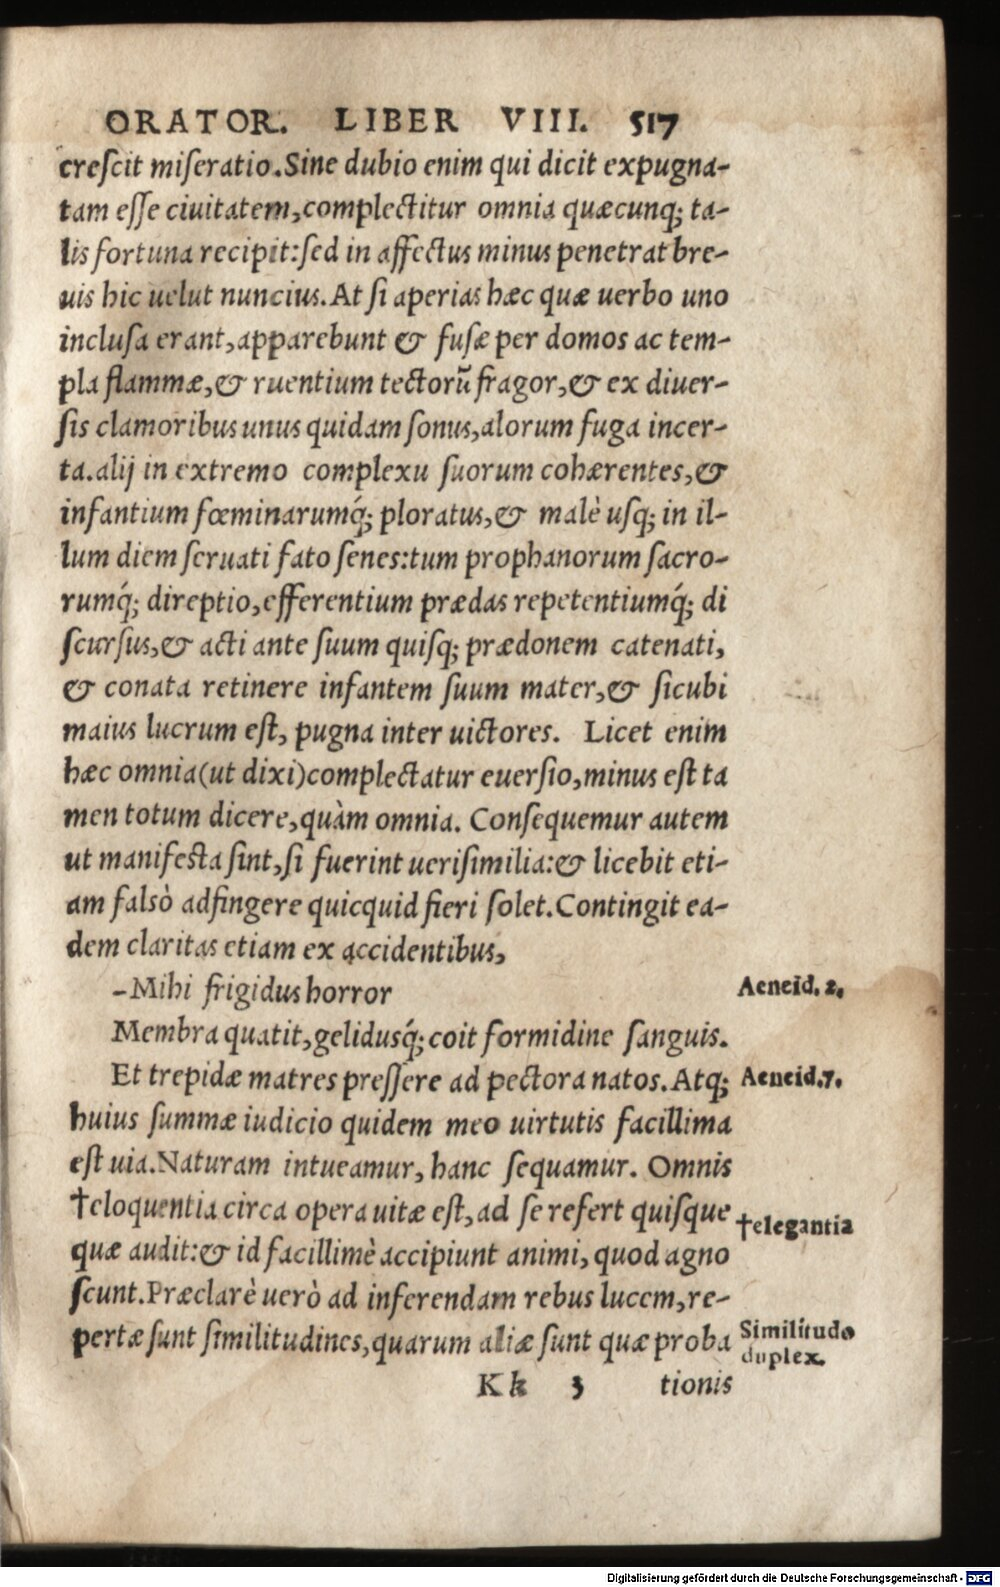 ORATOR. LIBER VIII. 517
creſcit miſeratio. Sine dubio enim qui dicit expugna-
tam eſſe ciuitatem, complectitur omnia quæcunq; ta-
lis fortuna recipit: ſed in affectus minus penetrat bre-
uis hic uelut nuncius. At ſi aperias hæc quæ uerbo uno
incluſa erant, apparebunt & fuſæ per domos ac tem-
pla flammæ, & ruentium tectorū fragor, & ex diuer-
ſis clamoribus unus quidam ſonus, alorum fuga incer-
ta. alij in extremo complexu ſuorum cohærentes, &
infantium fœminarumq́; ploratus, & malè uſq; in il-
lum diem ſeruati fato ſenes: tum prophanorum ſacro-
rumq́; direptio, efferentium prædas repetentiumq́; di
ſcurſus, & acti ante ſuum quiſq; prædonem catenati,
& conata retinere infantem ſuum mater, & ſicubi
maius lucrum eſt, pugna inter uictores. Licet enim
hæc omnia (ut dixi) complectatur euerſio, minus eſt ta
men totum dicere, quàm omnia. Conſequemur autem
ut manifeſta ſint, ſi fuerint ueriſimilia: & licebit eti-
am falsò adfingere quicquid fieri ſolet. Contingit ea-
dem claritas etiam ex accidentibus,
-Mihi frigidus horror
Aeneid. 2.
Membra quatit, gelidusq́; coit formidine ſanguis.
Et trepidæ matres preſſere ad pectora natos. Atq;
Aeneid. 7.
huius ſummæ iudicio quidem meo uirtutis facillima
eſt uia. Naturam intueamur, hanc ſequamur. Omnis
†eloquentia circa opera uitæ eſt, ad ſe refert quiſque
†elegantia
quæ audit: & id facillimè accipiunt animi, quod agno
ſcunt. Præclarè uerò ad inferendam rebus lucem, re-
pertæ ſunt ſimilitudines, quarum aliæ ſunt quæ proba
Similitudo
duplex.
Kk 3 tionis
Digitalisierung gefördert durch die Deutsche Forschungsgemeinschaft - DFG